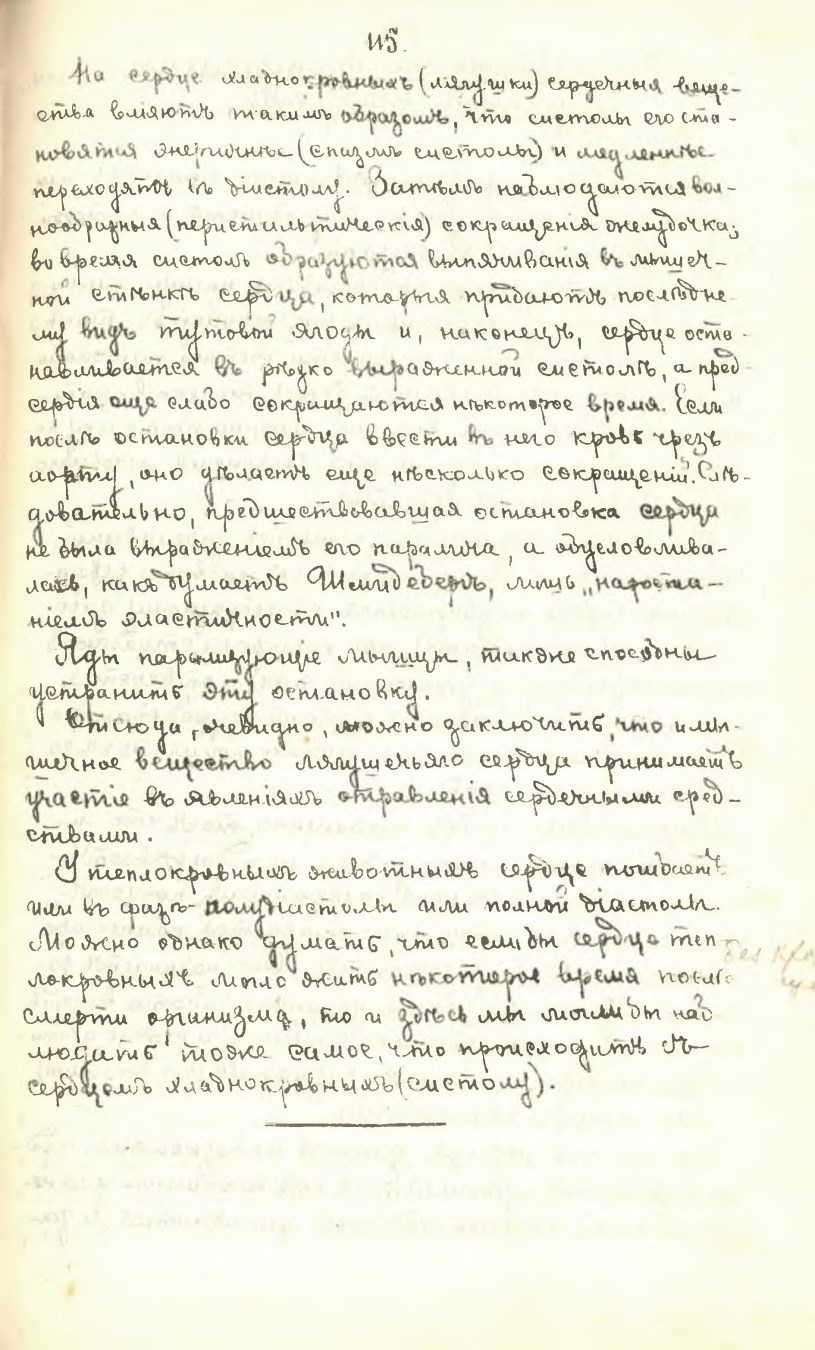 115.
На сердце хладнокровныхъ (лягушки) сердечныя веще-
ства вліяютъ такимъ образомъ, что систолы его ста-
новятся энергичнѣе (спазмъ систолы) и медленнѣе
переходятъ въ діистолу. Затѣмъ наблюдаются вол-
нообразныя (перистильтическія) сокращенія желудочка;
во время систолъ образуются выпячиванія въ мышеч-
ной стѣнкѣ сердца, которыя придаютъ послѣдне
му видъ тутовой ягоды и, наконецъ, сердце оста-
навливается въ рѣзко выраженной систолѣ, а пред
сердія еще слабо сокращаются нѣкоторое время. Если
послѣ остановки сердца ввести въ него кровь чрезъ
аорту, оно дѣлаетъ еще нѣсколько сокращеній. Слѣ-
довательно, предшествовавшая остановка сердца
не была выраженіемъ его паралича, а обусловлива-
лась, какъ думаетъ Шмидебергъ, лишь „нароста-
ніемъ эластичности".
Яды парализующіе мышцы, также способны
устранить эту остановку.
Отсюда, очевидно, можно заключить, что и мы-
шечное вещество лягушечьяго сердца принимаетъ
участіе въ явленіяхъ отравленія сердечными сред-
ствами.
У теплокровныхъ животныхъ сердце погибаетъ
или въ фазѣ полудіастолы или полной діастолы.
Можно однако думать, что еслибы сердце теп-
локровныхъ могло жить нѣкоторое время послѣ
смерти организма, то и здѣсь мы могли бы наб
людать тоже самое, что происходитъ съ
сердцемъ хладнокровныхъ (систолу).